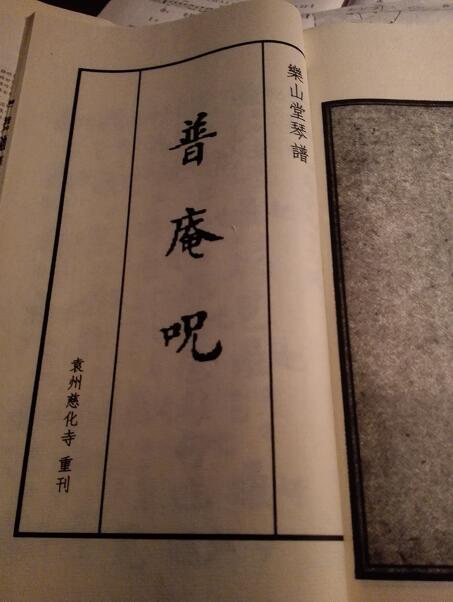 樂山堂琴譜
普庵呪
袁州慈化寺 重刊